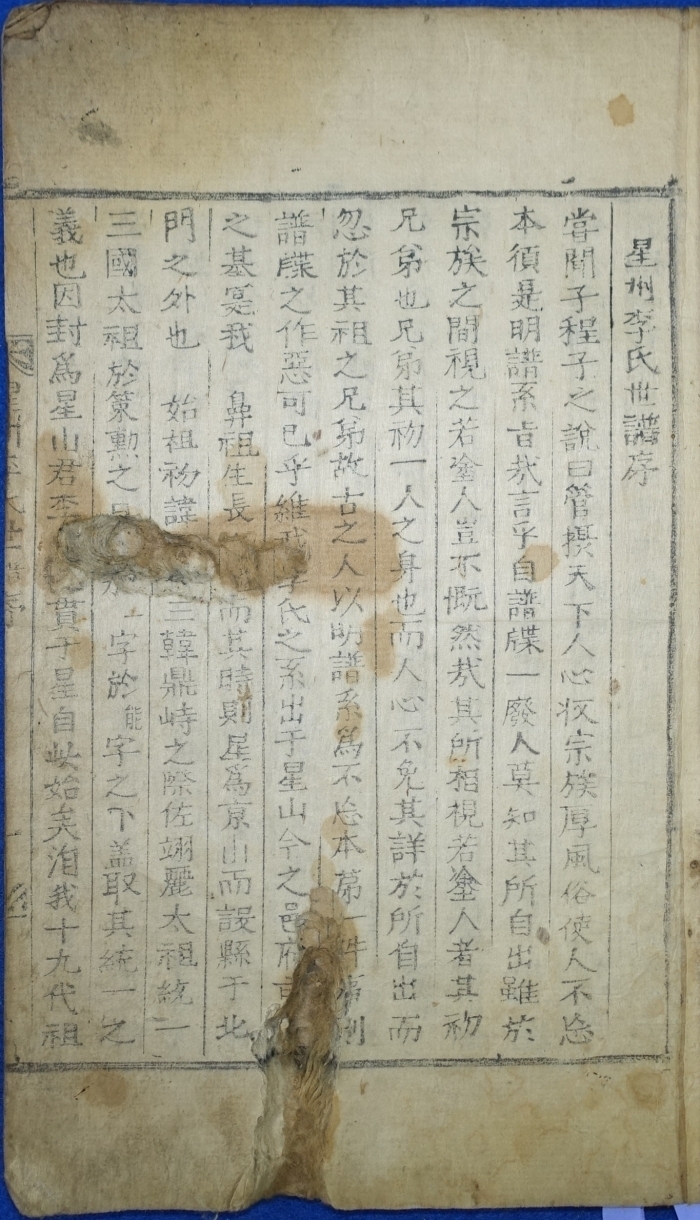 星州李氏世譜序
嘗聞子程子之說曰管攝天下人心収宗族厚風俗使人不忘
本須是明譜系旨㢤言乎自譜牒一廢人莫知其所自出雖於
宗族之間視之若塗人豈不慨然㢤其所相視若塗人者其初
兄弟也兄弟其初一人之身也而人心不免其詳於所自出而
忽於其祖之兄弟故古之人以明譜系爲不忘本第一件事則
譜牒之作惡可已乎維我李氏之系出于星山今之邑府
之基寔我 鼻祖生長 而其時則星爲京山而設縣于北
門之外也 始祖初諱 三韓鼎峙之際佐翊麗太祖統一
三國太祖於策勲之 於 一字於能字之下盖取其統一之
義也因封爲星山君李 貫于星自此始矣洎我十九代祖
星州李氏世譜序